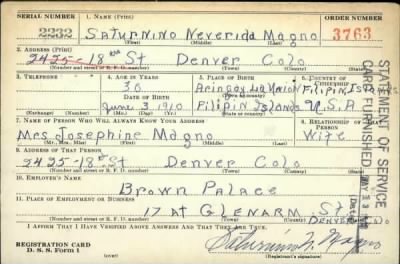 SERIAL NUMBER 1. NAME (Print) ORDER NUMBER
2232 Saturnino Neverida Magno 3763
(First) (Middle) (Last)
2. ADDRESS (Print)
2425-18th St Denver Colo
(Number and street or R. F. D. number) (Town) (County) (State)
3. TELEPHONE 4. AGE IN YEARS 5. PLACE OF BIRTH 6. COUNTRY OF CITIZENSHIP
30 Aringay La Union Filipin Islands
DATE OF BIRTH
June 3 1910 Filipin Islands U.S.A
(Exchange) (Number) (Mo.) (Day) (Yr.) (State or country)
7. NAME OF PERSON WHO WILL ALWAYS KNOW YOUR ADDRESS 8. RELATIONSHIP OF THAT PERSON
Mrs Josephine Magno Wife
(Mr., Mrs., Miss) (First) (Middle) (Last)
9. ADDRESS OF THAT PERSON
2425-18th St Denver Colo
(Number and street or R. F. D. number) (Town) (County) (State)
10. EMPLOYER'S NAME
Brown Palace
11. PLACE OF EMPLOYMENT OR BUSINESS
17 at Glenarm St Denver Colo
(Number and street or R. F. D. number) (Town) (County) (State)
I AFFIRM THAT I HAVE VERIFIED ABOVE ANSWERS AND THAT THEY ARE TRUE.
REGISTRATION CARD
D. S. S. Form 1
(over)
Saturnino N. Magno
(Registrant's signature)
STATEMENT OF SERVICE
CARD FURNISHED